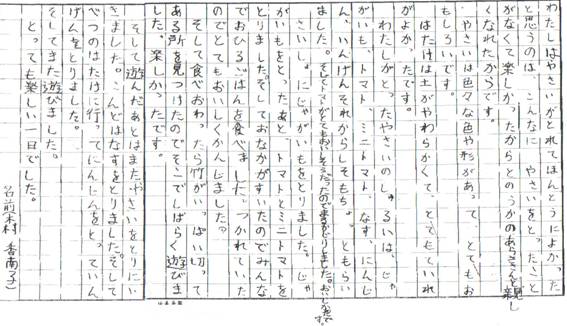 わたしはやさいがとれてほんとうによかった
と思うのは、こんなにやさいをとったこと
がなくて楽しかったからとのうかのあらさんと親し
くなれたからです。
やさいは色々な色や形があって、とてもお
もしろいです。
はたけは土がやわらかくて、とてもていれ
がよかったです。
わたしがとったやさいのしゅるいは、じゃ
がいも、トマト、ミニトマト、なす、にんじ
ん、いんげんそれからしそもちょっともらい
ました。そしてトマトがとてもおいしそうだったので丸かじりしました。おいしかったです。
さいしょにじゃがいもをとりました。じゃ
がいもをとったあとトマトとミニトマトを
とりました。そしておなかがすいたのでみんな
でおひるごはんを食べました。つかれていた
のでとてもおいしくかんじました。
そして食べおわったら竹がいっぱい切って
ある所を見つけたのでそこでしばらく遊びま
した。楽しかったです。
そして遊んだあとはまたやさいをとりにい
きました。こんどはなすをとりました。そして
べつのはたけに行ってにんじんをとっていん
げんをとりました。
そしてまた遊びました。
とっても楽しい一日でした。
名前(木村 香南子)